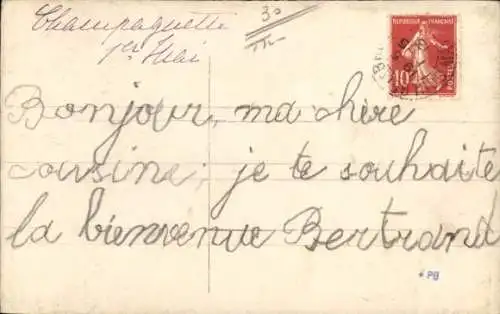 Champaquette
1er Mai
30
REPUBLIQUE FRANÇAISE
10
POSTES
Bonjour, ma chère
cousine, je te souhaite
la bienvenue Bertrand
PB